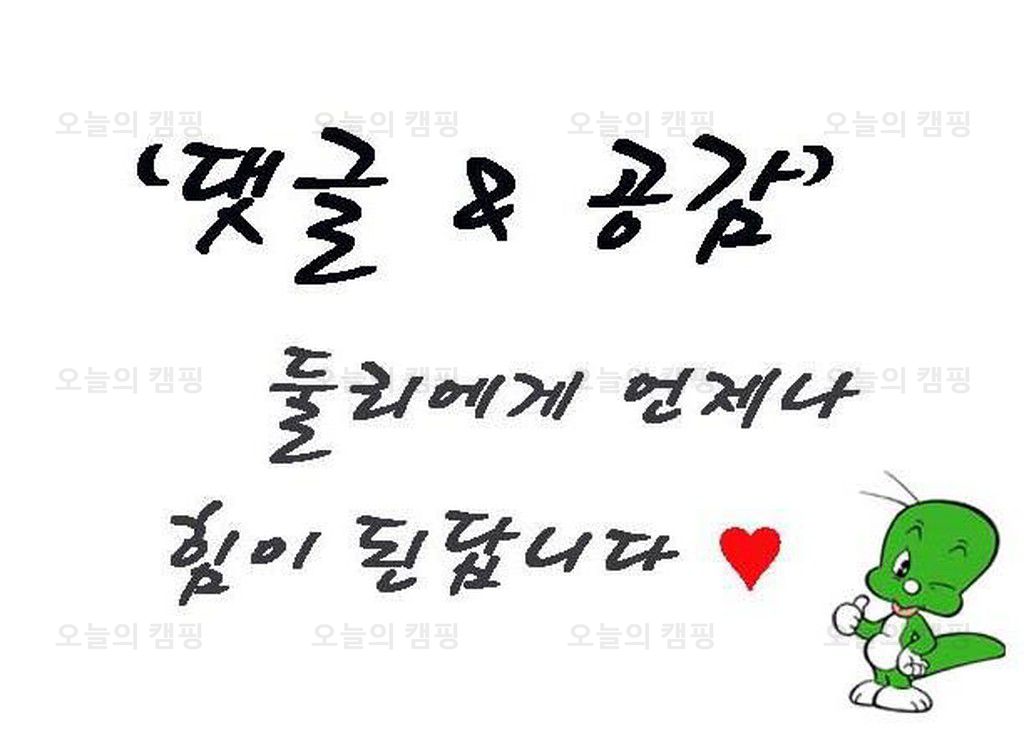 오늘의 캠핑 오늘의 캠핑 오늘의 캠핑 오늘의 캠핑
'댓글 & 공감'
오늘의 캠핑 오늘의 캠핑 오늘의 캠핑 오늘의 캠핑
둘리에게 언제나
힘이 된답니다 ♥
오늘의 캠핑 오늘의 캠핑 오늘의 캠핑 오늘의 캠핑